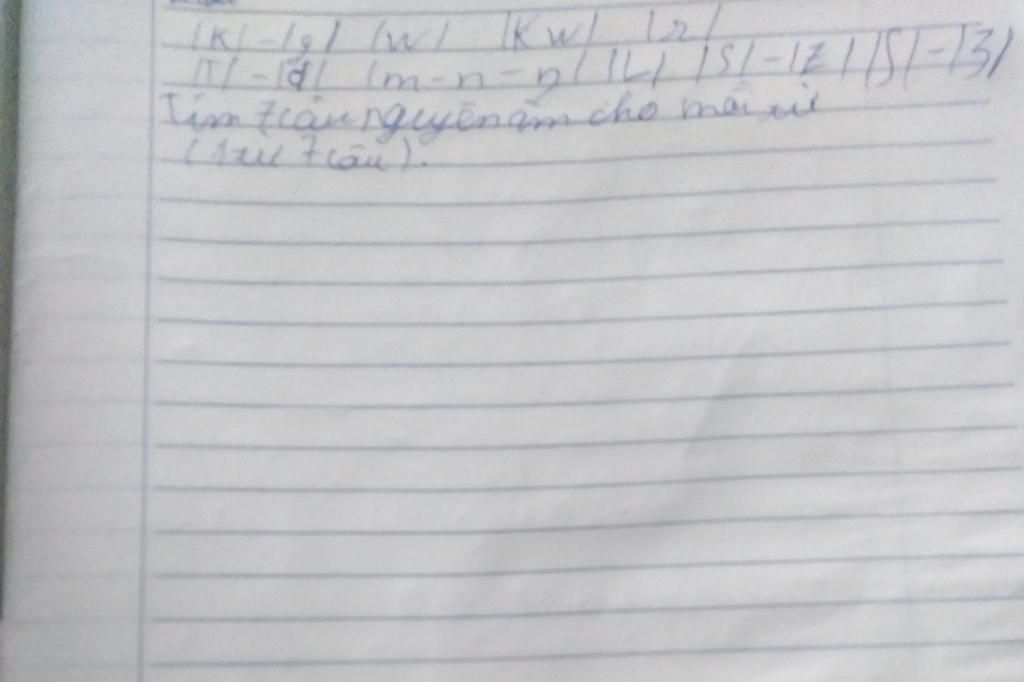 /k/ - /g/ /w/ /kw/ /r/
/T/ - /d/ /m - n - ŋ/ /L/ /S/ - /Z/ /ʃ/ - /ʒ/
Tìm 7 câu nguyên âm cho mỗi từ
(1 từ 7 câu).